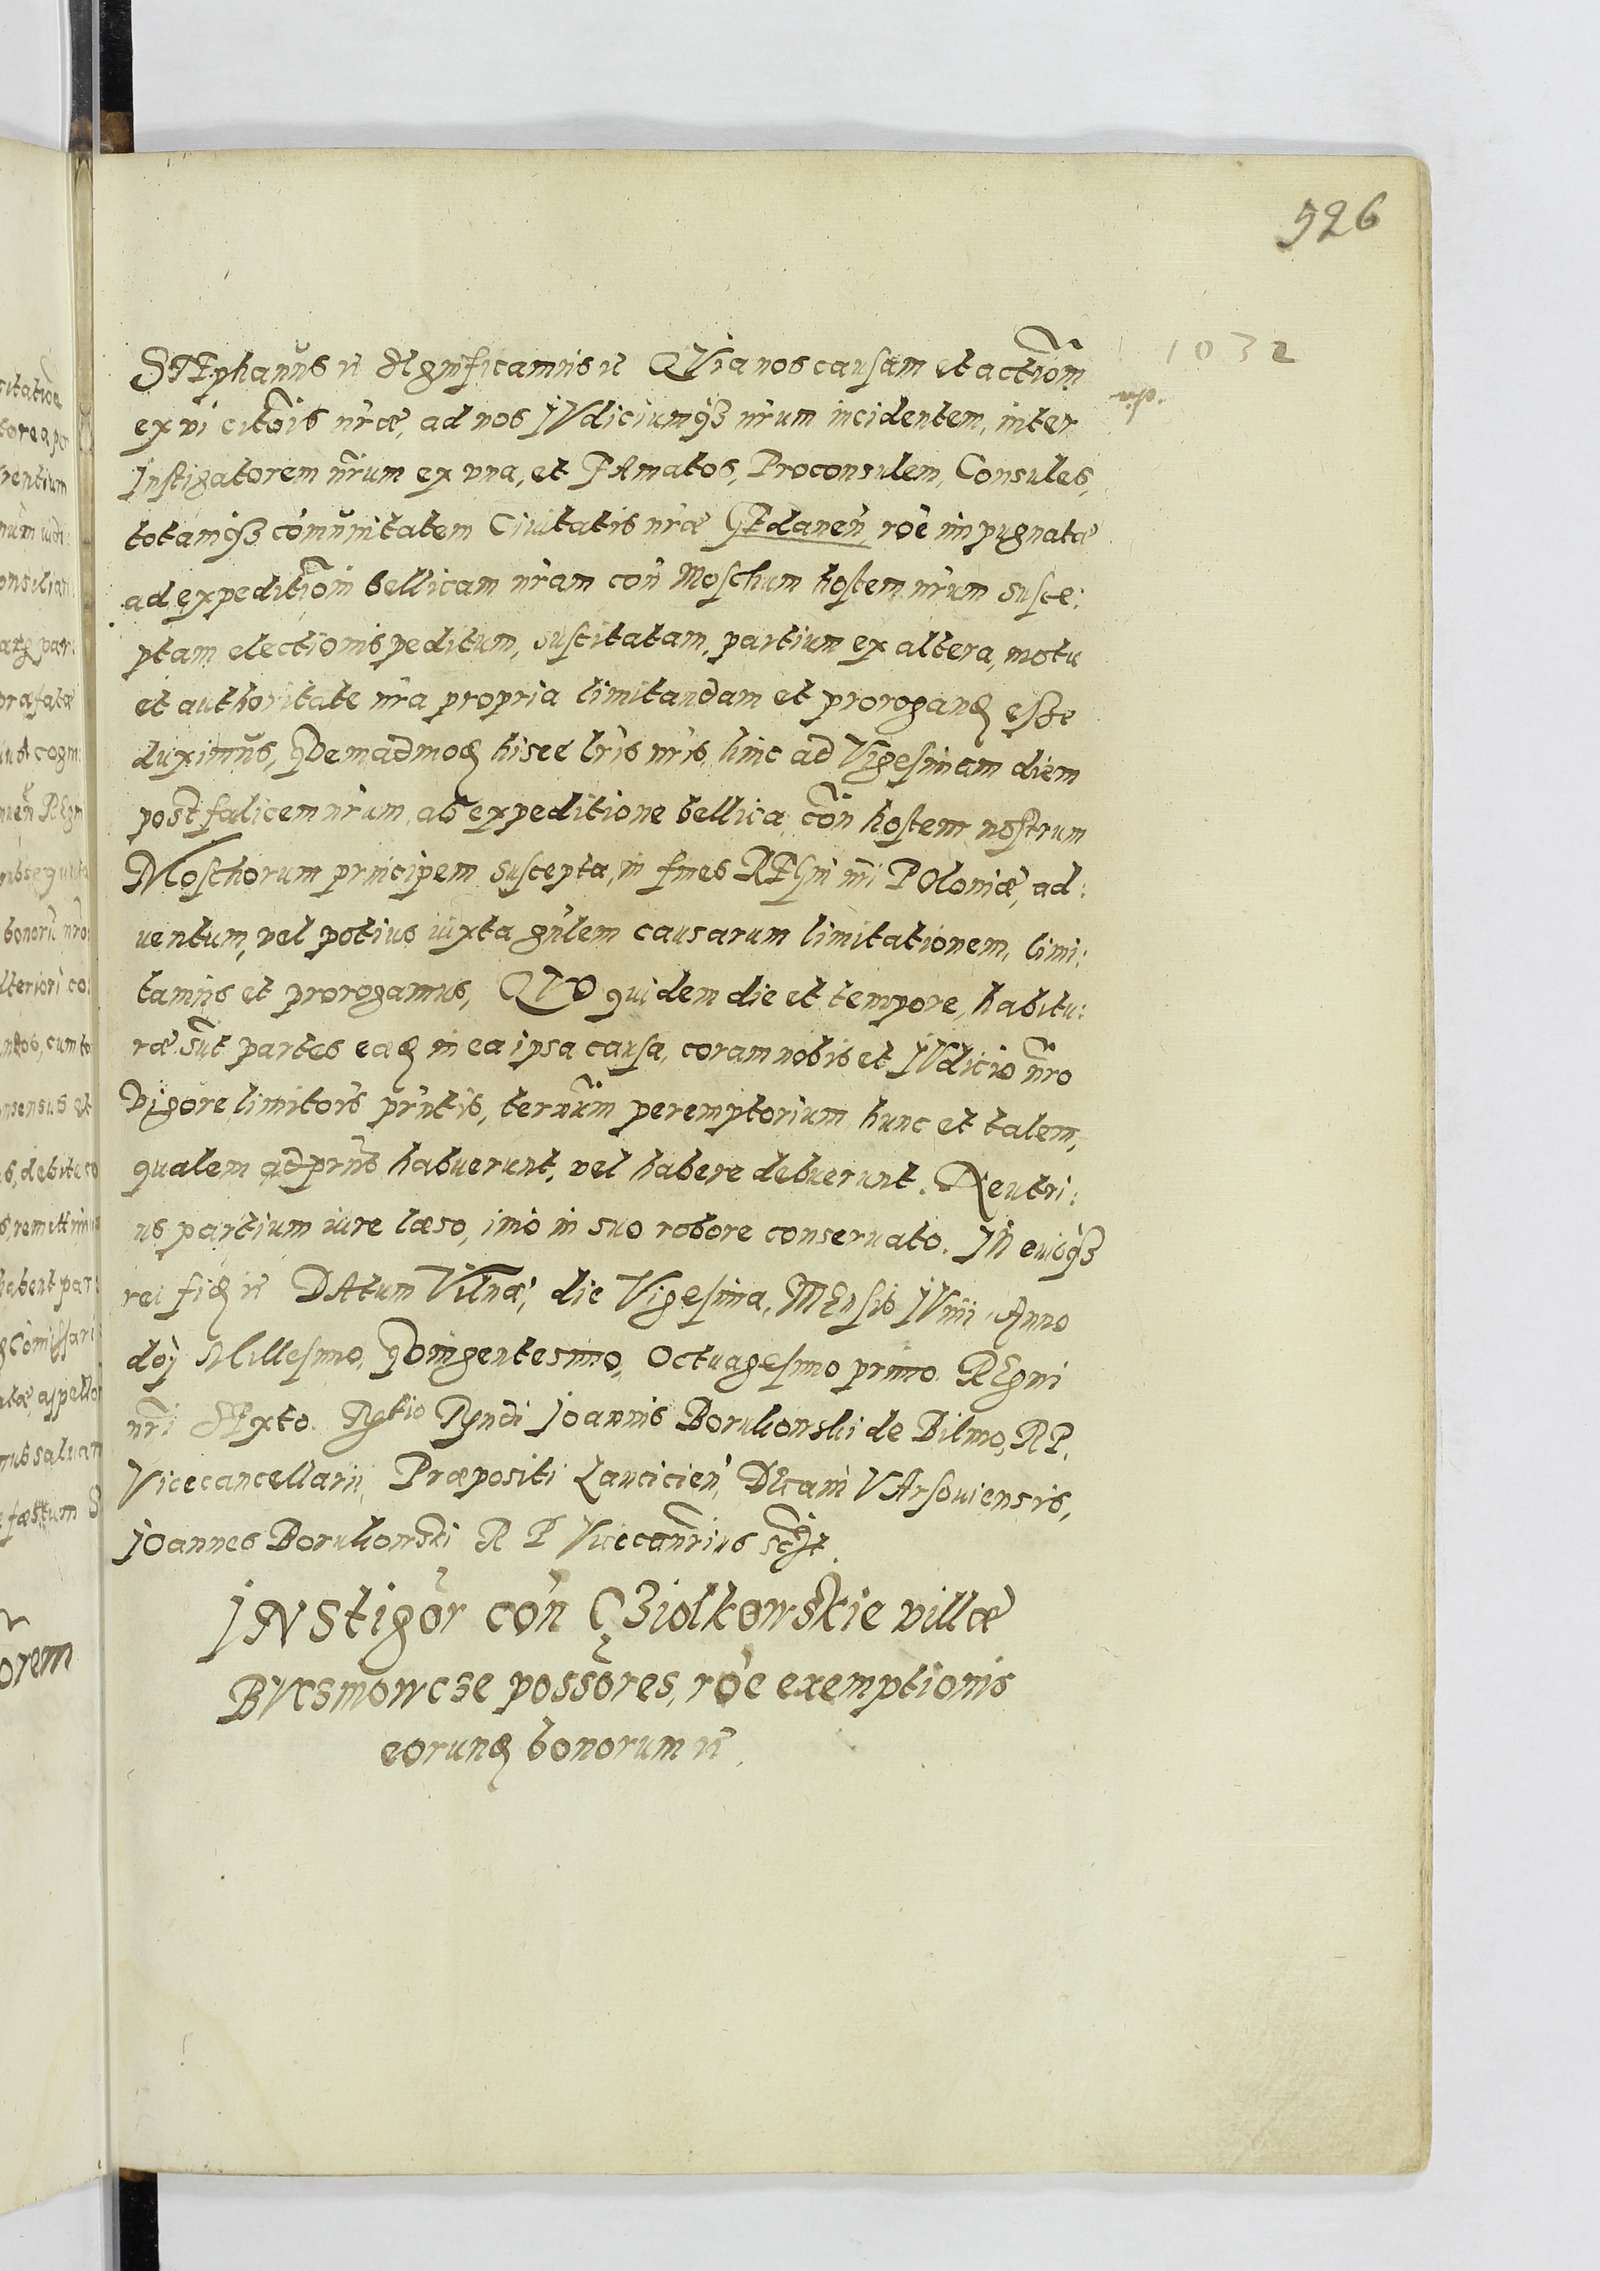 526
1032
STEphanus etc Significamus etc QVia nos causam et actiom̃
ex vi citõis nr̃æ, ad nos JVdiciumq3 nr̃um incidentem, inter
Jnstigatorem nr̃um ex vna, et FAmatos, Proconsulem, Consules,
totamq3 com̃unitatem Ciuitatis nr̃æ GEdanen̄, rõe impugnatæ
ad expeditiom̃ bellicam nr̃am con̄ Moschum hostem nr̃um susce:
ptam electionis peditum, suscitatam, partium ex altera, motu
et authoritate nr̃a propria limitandam et prorogand esse
duximus, QVemadmod hisce lr̃is nr̃is hinc ad Vigesimam diem
post fælicem nr̃um, ab expeditione bellica con̄ hostem nostrum
Moschorum principem suscepta, in fines REgni nr̃i POloniæ, ad:
uentum, vel potius iuxta gn̄lem causarum limitationem, limi:
tamus et prorogamus, QVO quidem die et tempore, habitu:
ræ sūt partes eæd in ea ipsa causa, coram nobis et JVdicio nr̃o
vigore limitõis pr̃ntis, termin̄um peremptorium hunc et talem,
qualem ad pr̃ns habuerunt, vel habere debuerunt. Neutri:
us partium iure læso, imo in suo robore conseruato. Jn cuiusq3
rei fid etc DAtum Vilnæ, die Vigesima, MEnsis JVnii Anno
doj Millesimo, QVingentesimo, Octuagesimo primo. REgni
nr̃i SExto. Rtio Rṇdi Joannis Borukowski de Bilino, RP.
Vicecancellarii, Præpositi Lancicien̄, DEcani VArsouiensis,
JOannes Borukowski R P Vicecan̄rius sst.
JNStigõr con̄ CZiolkowskie villæ
BVczmowcze possõres, rõe exemptionis
eorund bonorum etc